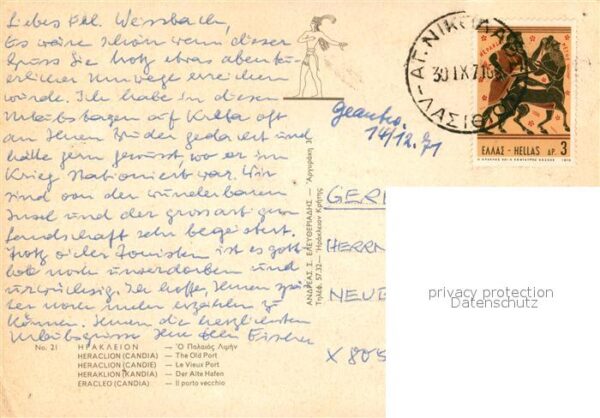 Liebes Frl. Weissbach,
Es wäre schön wenn dieser
Gruss Sie trotz etwas abenteu-
erlicher Umwege erreichen
würde. Ich habe in diesen
Urlaubstagen auf Kreta oft
an Ihren Bruder gedacht und
hätte gern gewusst, wo er im
Krieg stationiert war. Wir
sind von der wunderbaren
Insel und der grossartigen
Landschaft sehr begeistert.
Trotz vieler Touristen ist es gott-
lob noch unverdorben und
urwüchsig. Ich hoffe, Ihnen spä-
ter noch mehr erzählen zu
können. Ihnen die herzlichsten
Urlaubsgrüsse Ihre
No. 21 ΗΡΑΚΛΕΙΟΝ — Ὁ Παλαιὸς Λιμὴν
HERACLION (CANDIA) — The Old Port
HERACLION (CANDIE) — Le Vieux Port
HERAKLION (KANDIA) — Der Alte Hafen
ERACLEO (CANDIA) — Il porto vecchio
ΑΝΔΡΕΑΣ Σ. ΕΛΕΥΘΕΡΙΑΔΗΣ — Ἀργυράκη
Τηλέφ. 57.32 — Ἡράκλειον Κρήτης
14/12.71
ΑΓ. ΝΙΚΟΛΑΟΣ
30 IX 71
ΛΑΣΙΘ
ΕΛΛΑΣ - HELLAS ΔΡ. 3
1970
GER
HERRN
NEU
X 805
privacy protection
Datenschutz